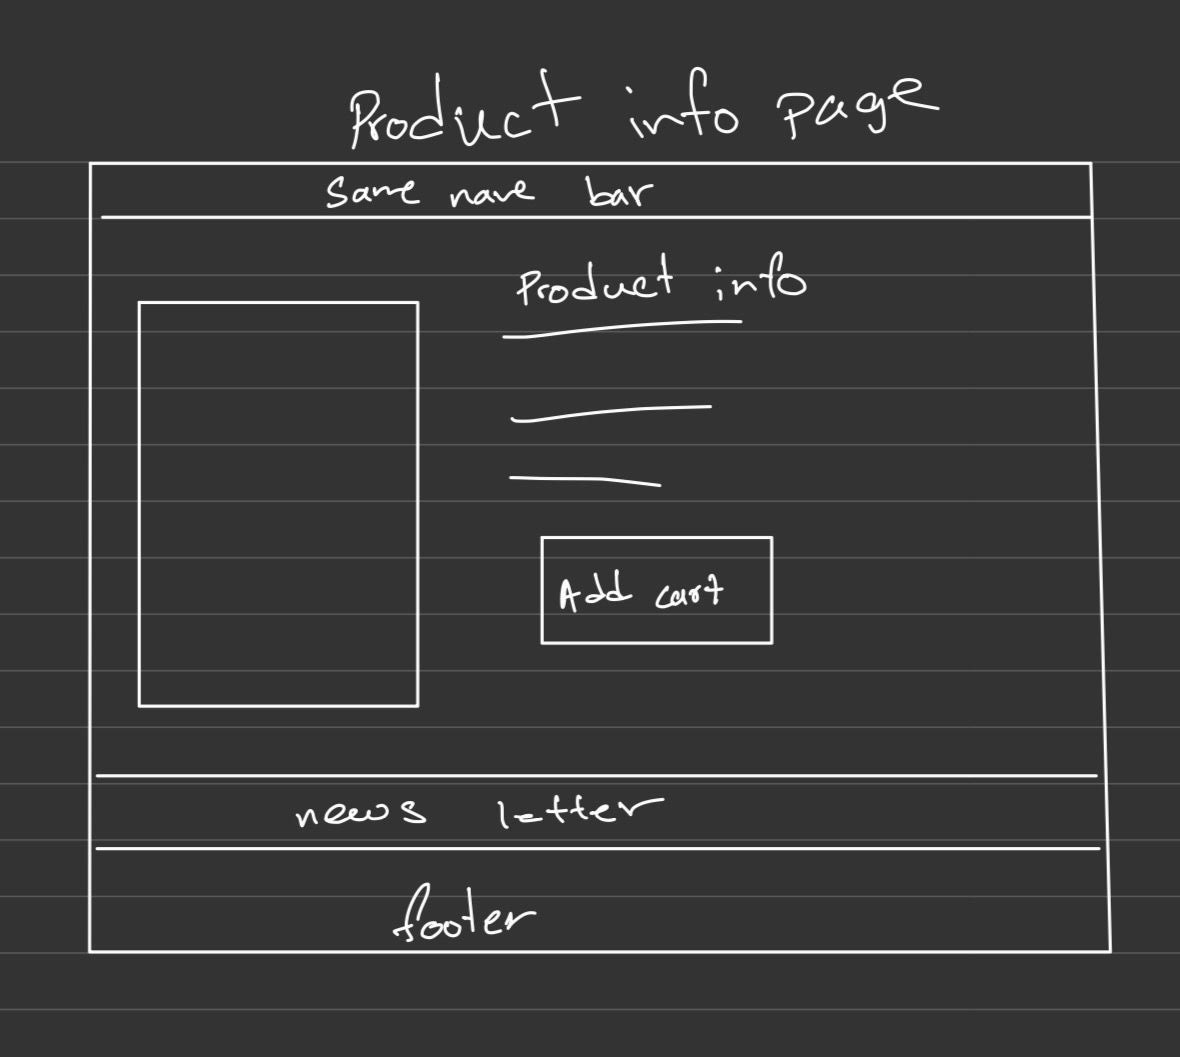 Product info page
Same nave bar
Product info
Add cart
news letter
footer